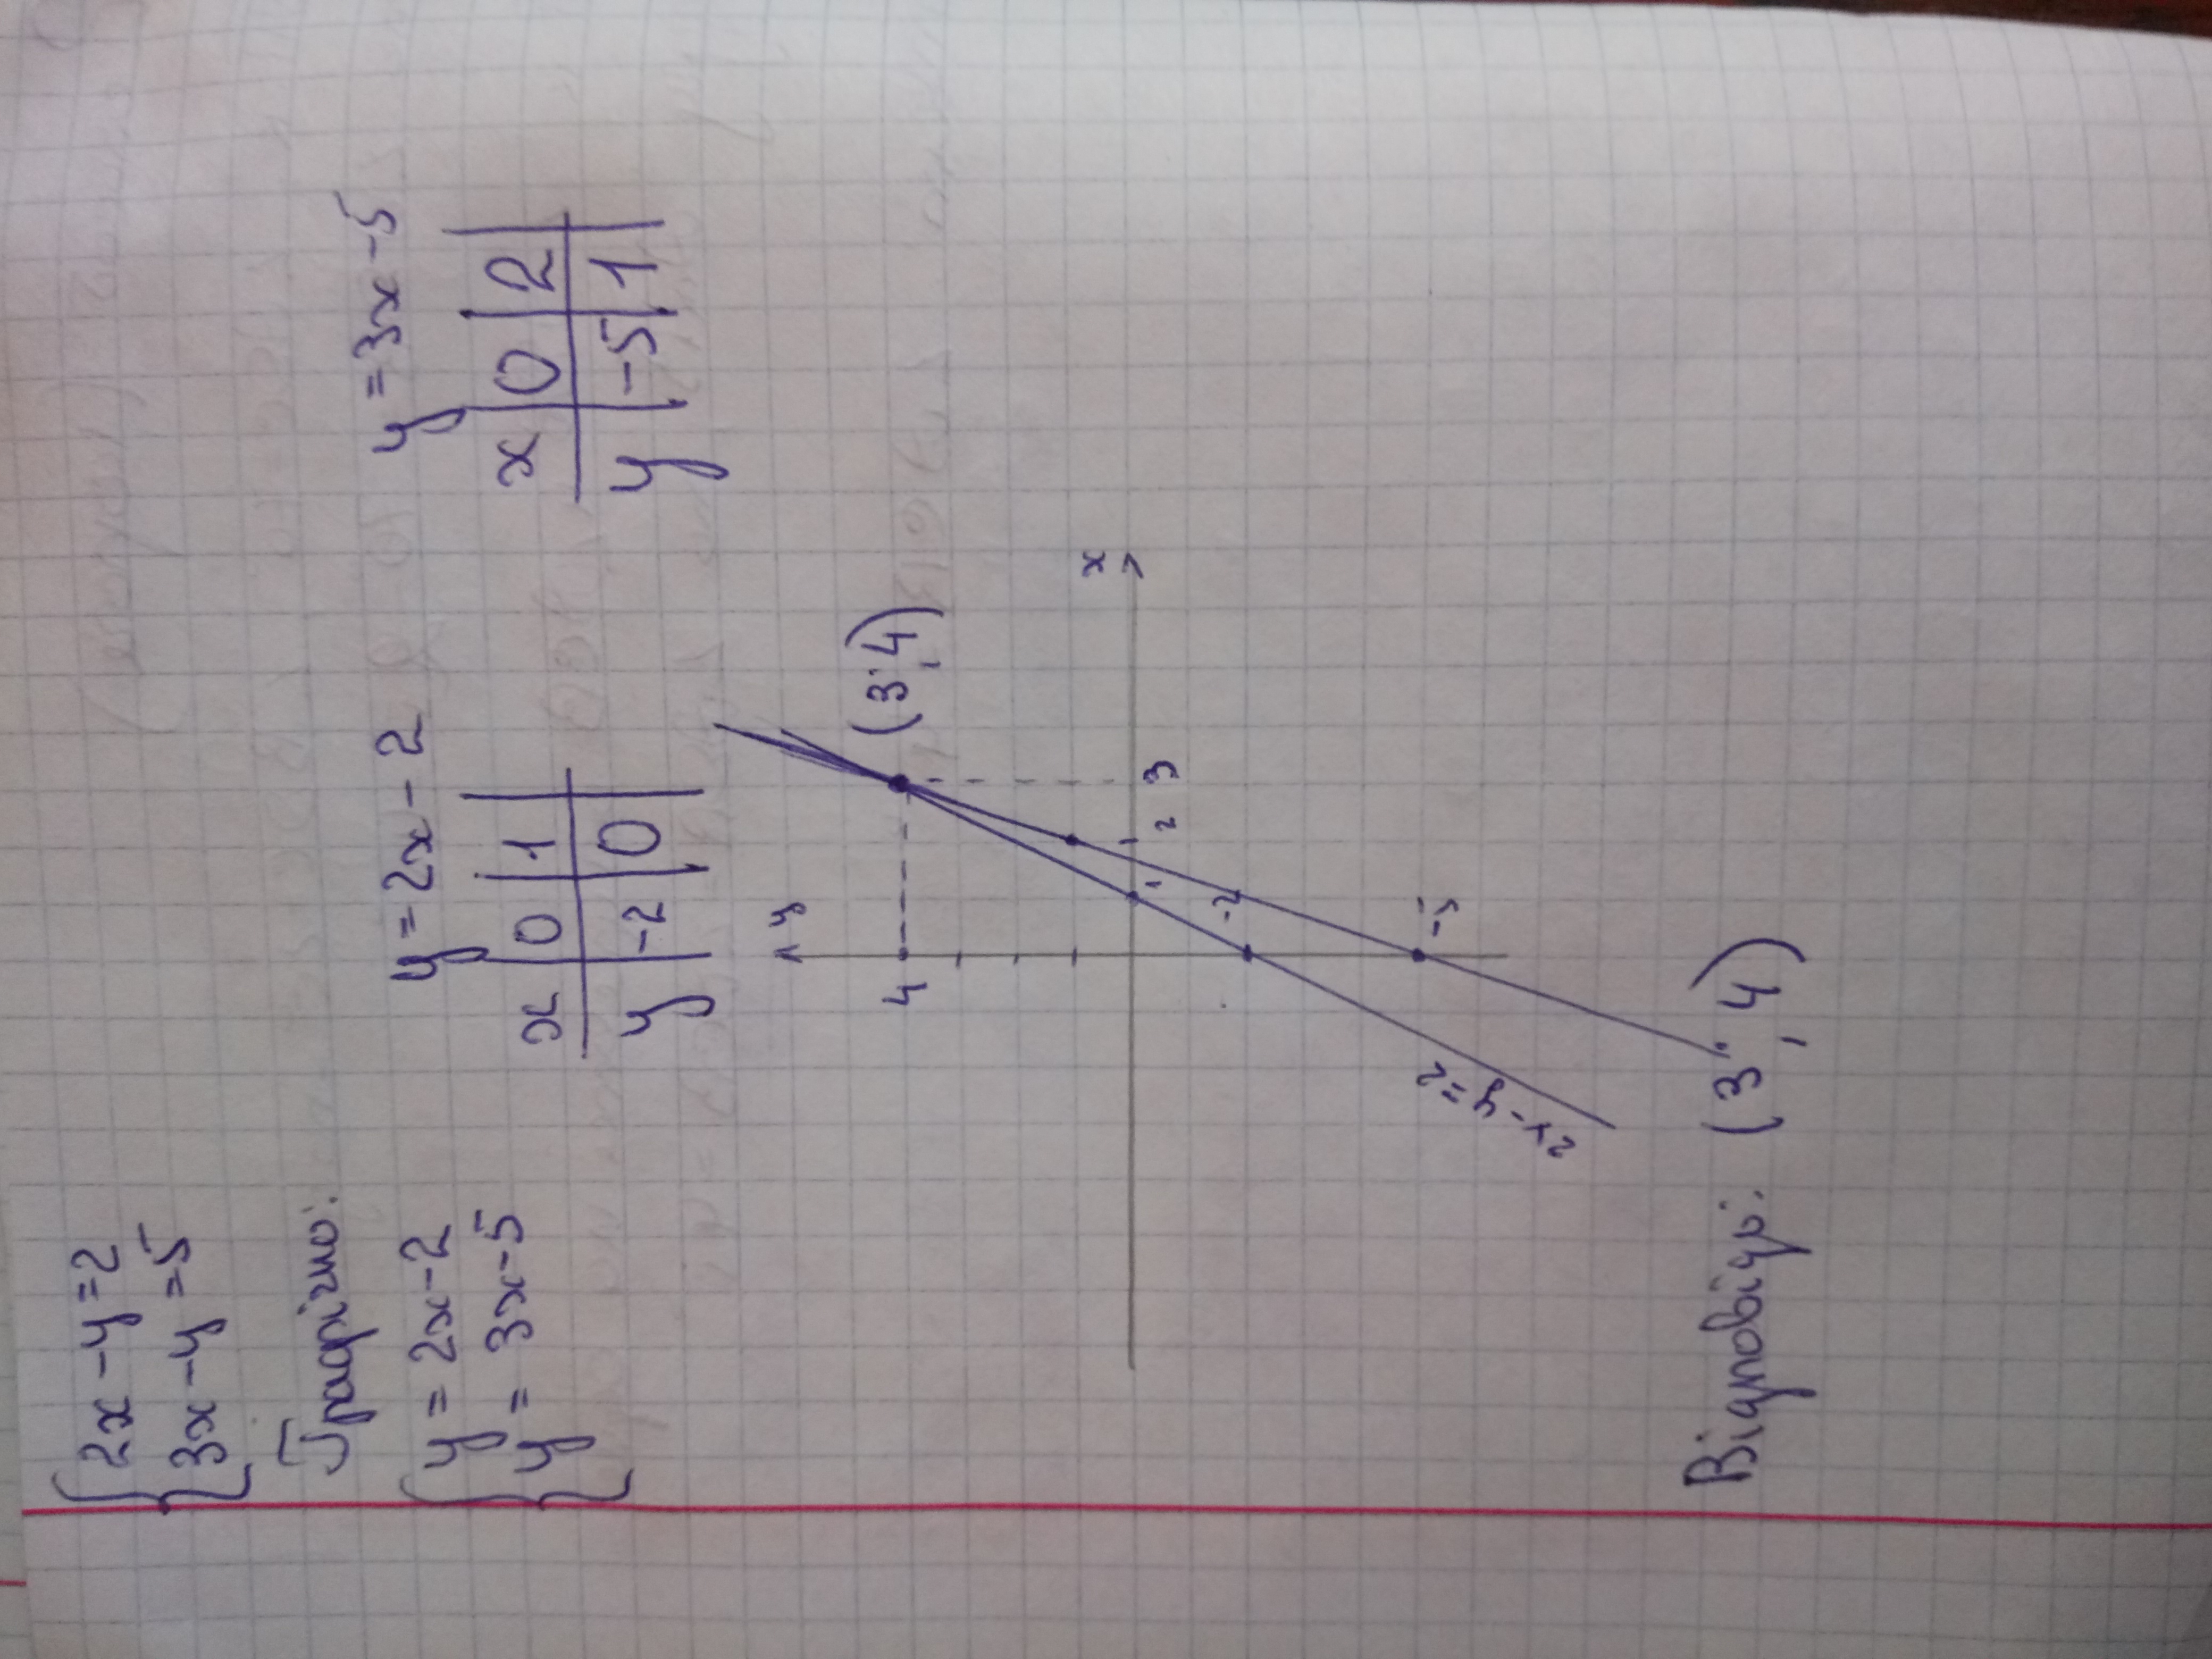 { 2x - y = 2
3x - y = 5
Графічно:
{ y = 2x - 2
y = 3x - 5
y = 2x - 2
x | 0 | 1
y | -2 | 0
y = 3x - 5
x | 0 | 2
y | -5 | 1
y
4
(3; 4)
x
1
2
3
-2
-5
2x - y = 2
Відповідь: (3; 4)